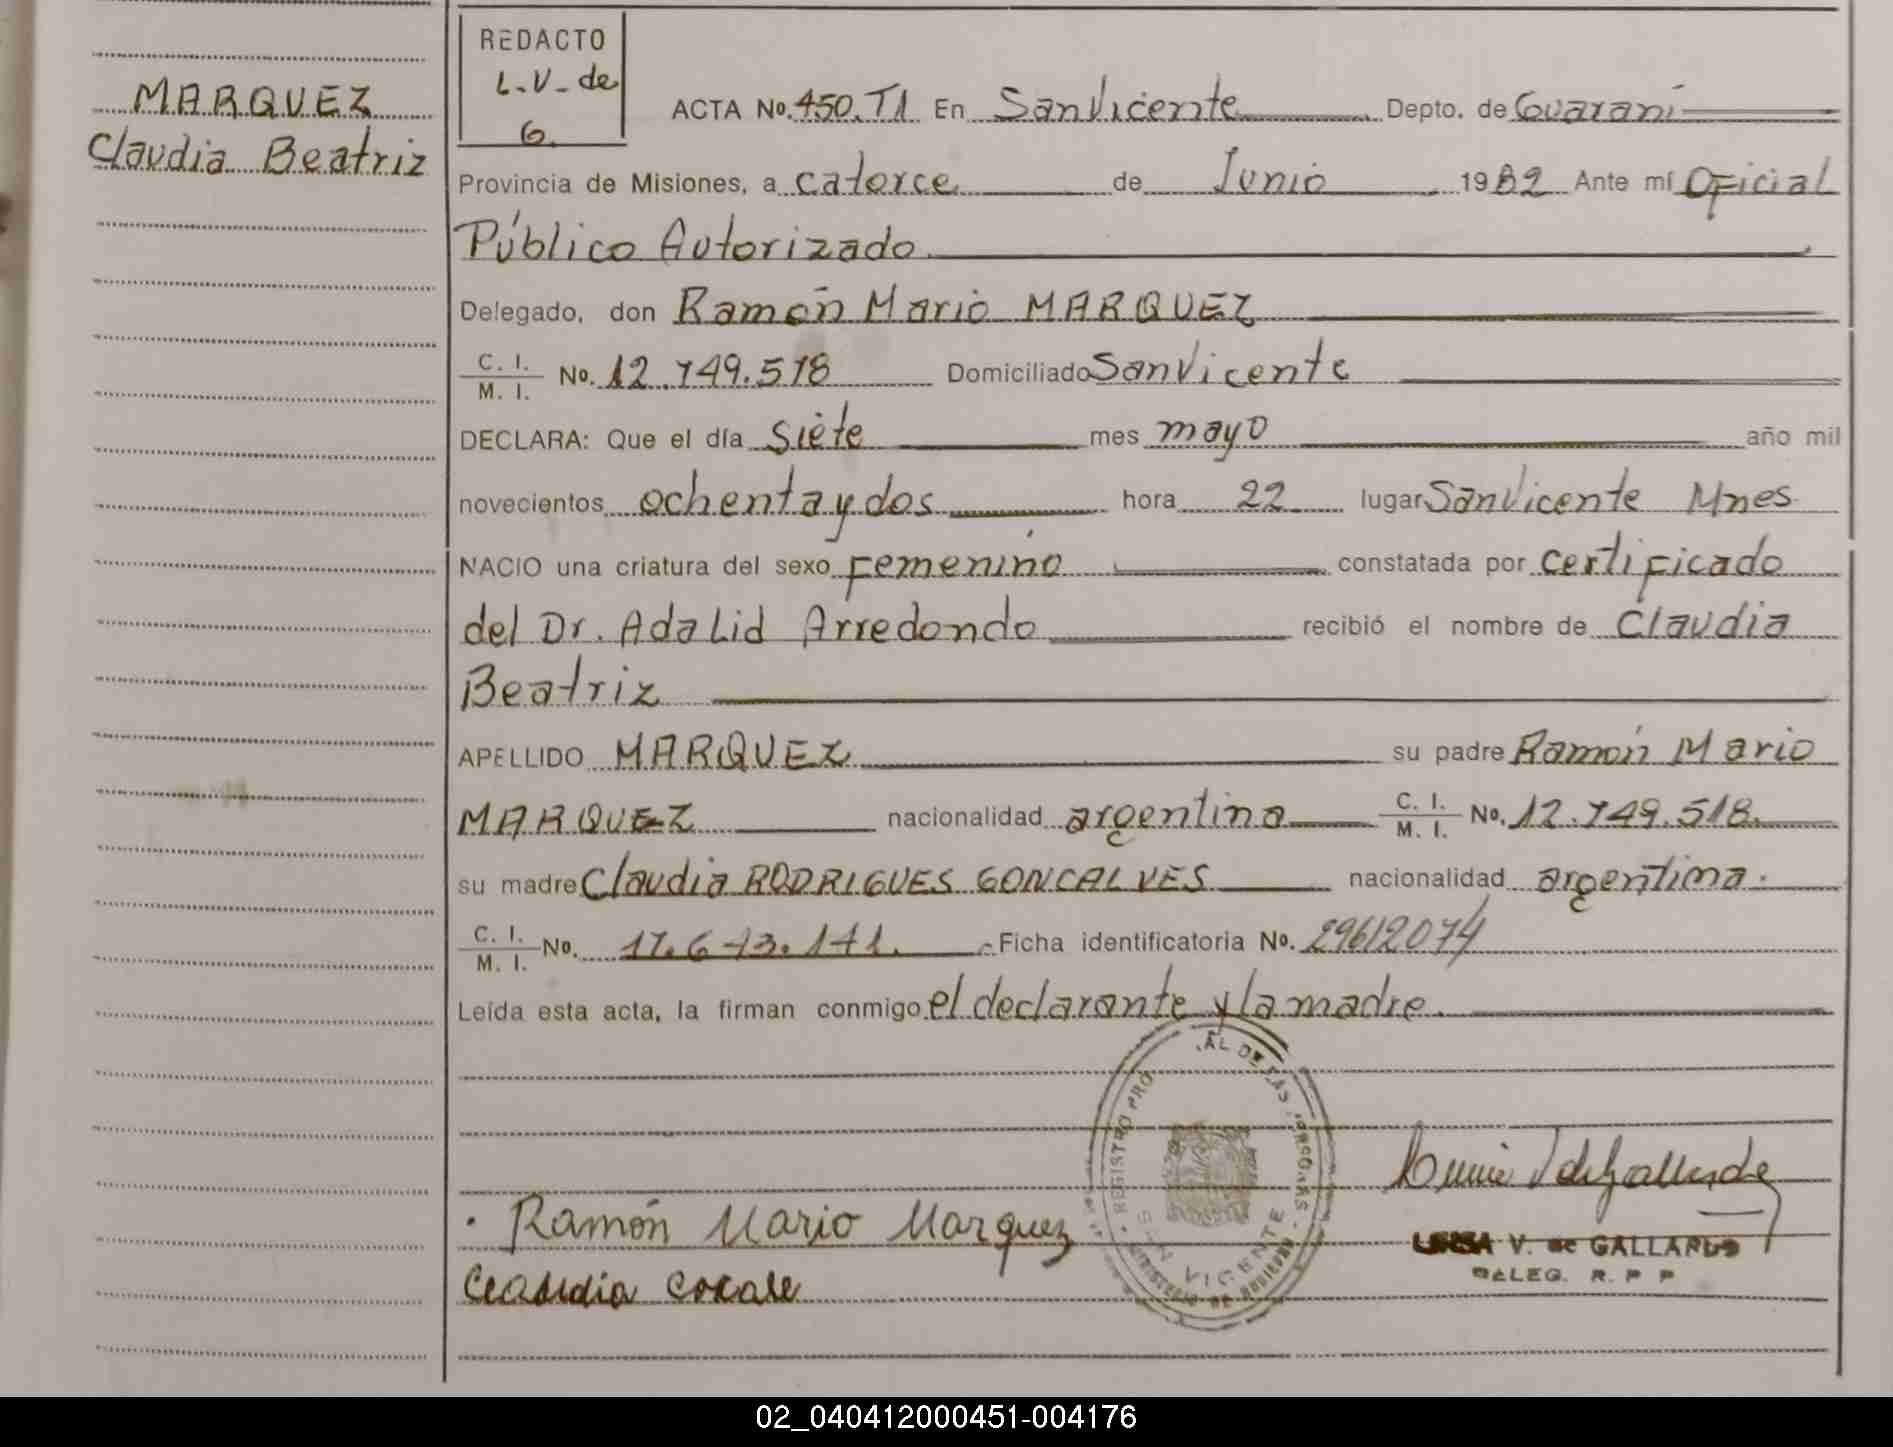 MARQUEZ
Claudia Beatriz
REDACTO
L.V. de
G.
ACTA No. 450. T1 En San Vicente Depto. de Guaraní
Provincia de Misiones, a catorce de Junio 1982 Ante mí Oficial
Público Autorizado
Delegado, don Ramón Mario MARQUEZ
C. I.
M. I. No. 12.749.518 Domiciliado San Vicente
DECLARA: Que el día siete mes mayo año mil
novecientos ochenta y dos hora 22 lugar San Vicente Mnes
NACIO una criatura del sexo femenino constatada por certificado
del Dr. Adalid Arredondo recibió el nombre de Claudia
Beatriz
APELLIDO MARQUEZ su padre Ramón Mario
MARQUEZ nacionalidad argentina C. I.
M. I. No. 12.749.518.
su madre Claudia RODRIGUES GONCALVES nacionalidad argentina.
C. I.
M. I. No. Ficha identificatoria No. 29612074
Leída esta acta, la firman conmigo el declarante y la madre.
REGISTRO PRO AL DE LAS PERSONAS
SAN VICENTE
MINISTERIO DE GOBIERNO
Ramón Mario Marquez
V. de GALLARDO
DELEG. R. P. P
02_040412000451-004176